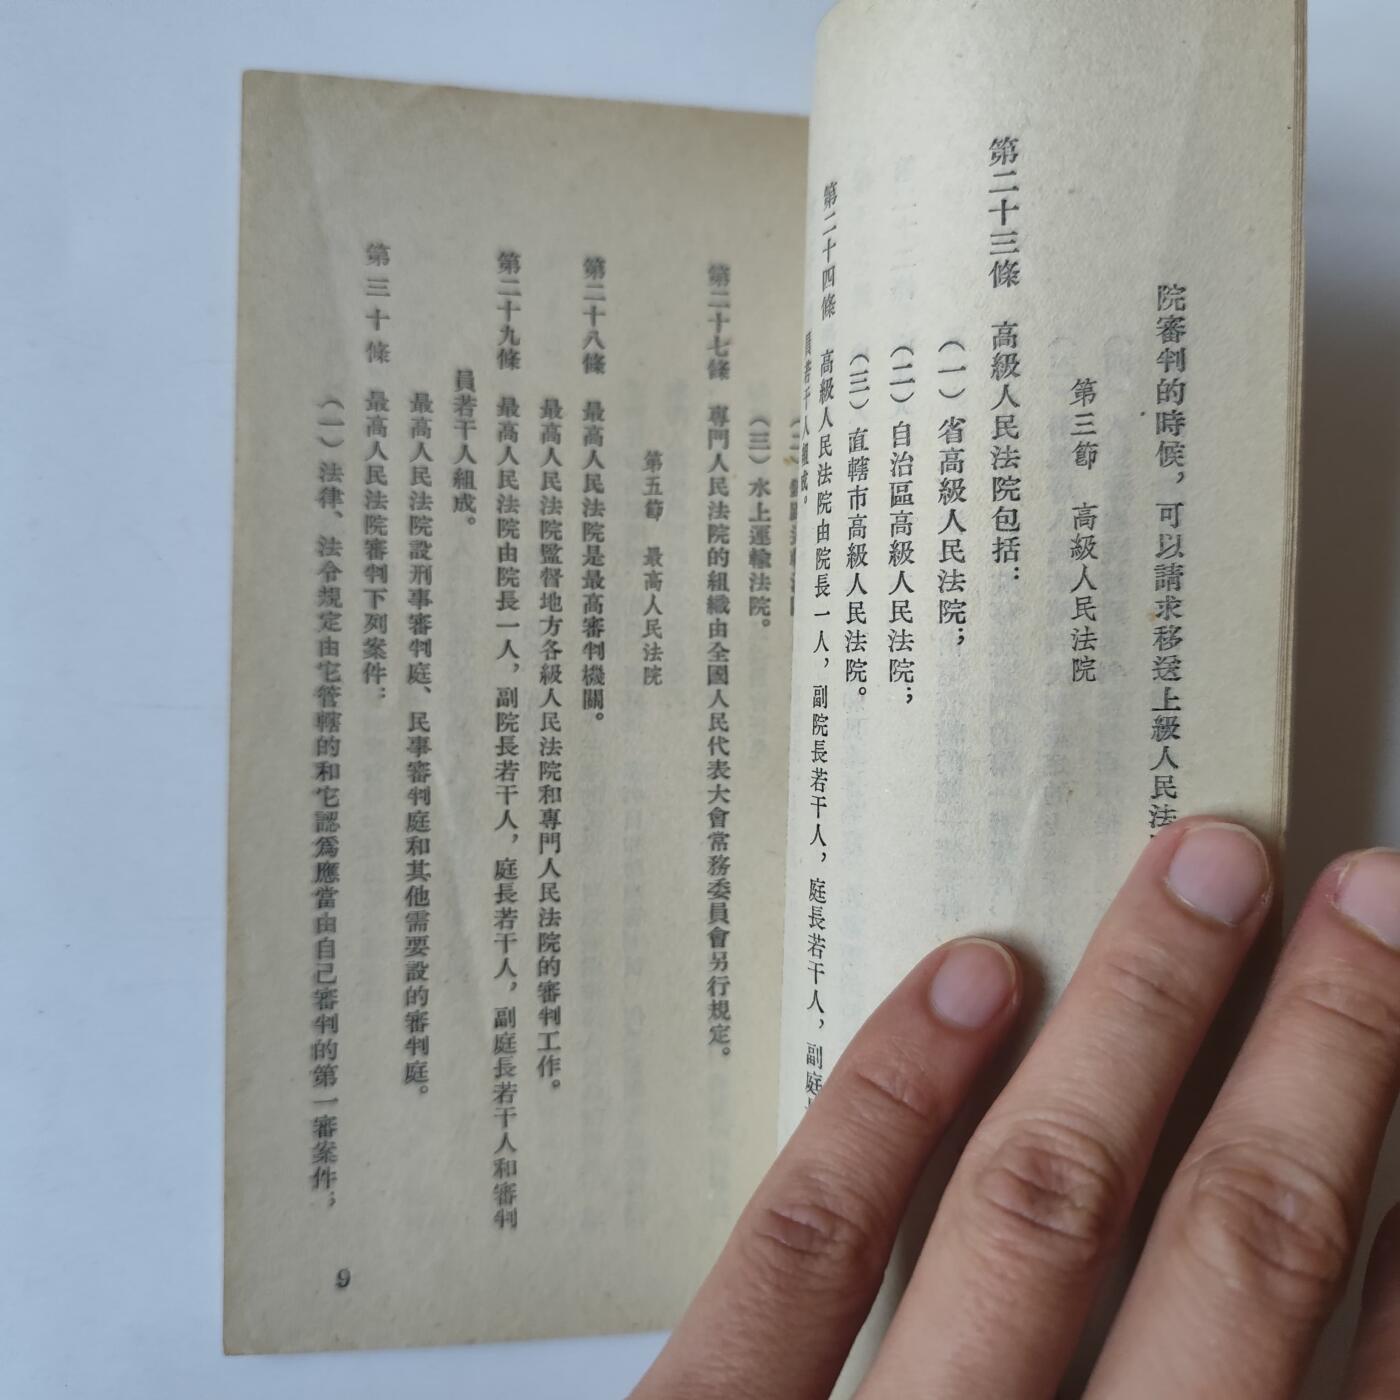 院審判的時候，可以請求移送上級人民法
第三節　高級人民法院
第二十三條　高級人民法院包括：
（一）省高級人民法院；
（二）自治區高級人民法院；
（三）直轄市高級人民法院。
第二十四條　高級人民法院由院長一人，副院長若干人，庭長若干人，副庭
員若干人組成。
（三）水上運輸法院。
第二十七條　專門人民法院的組織由全國人民代表大會常務委員會另行規定。
第五節　最高人民法院
第二十八條　最高人民法院是最高審判機關。
最高人民法院監督地方各級人民法院和專門人民法院的審判工作。
第二十九條　最高人民法院由院長一人，副院長若干人，庭長若干人，副庭長若干人和審判
員若干人組成。
最高人民法院設刑事審判庭、民事審判庭和其他需要設的審判庭。
第三十條　最高人民法院審判下列案件：
（一）法律、法令規定由它管轄的和它認爲應當由自己審判的第一審案件；
9